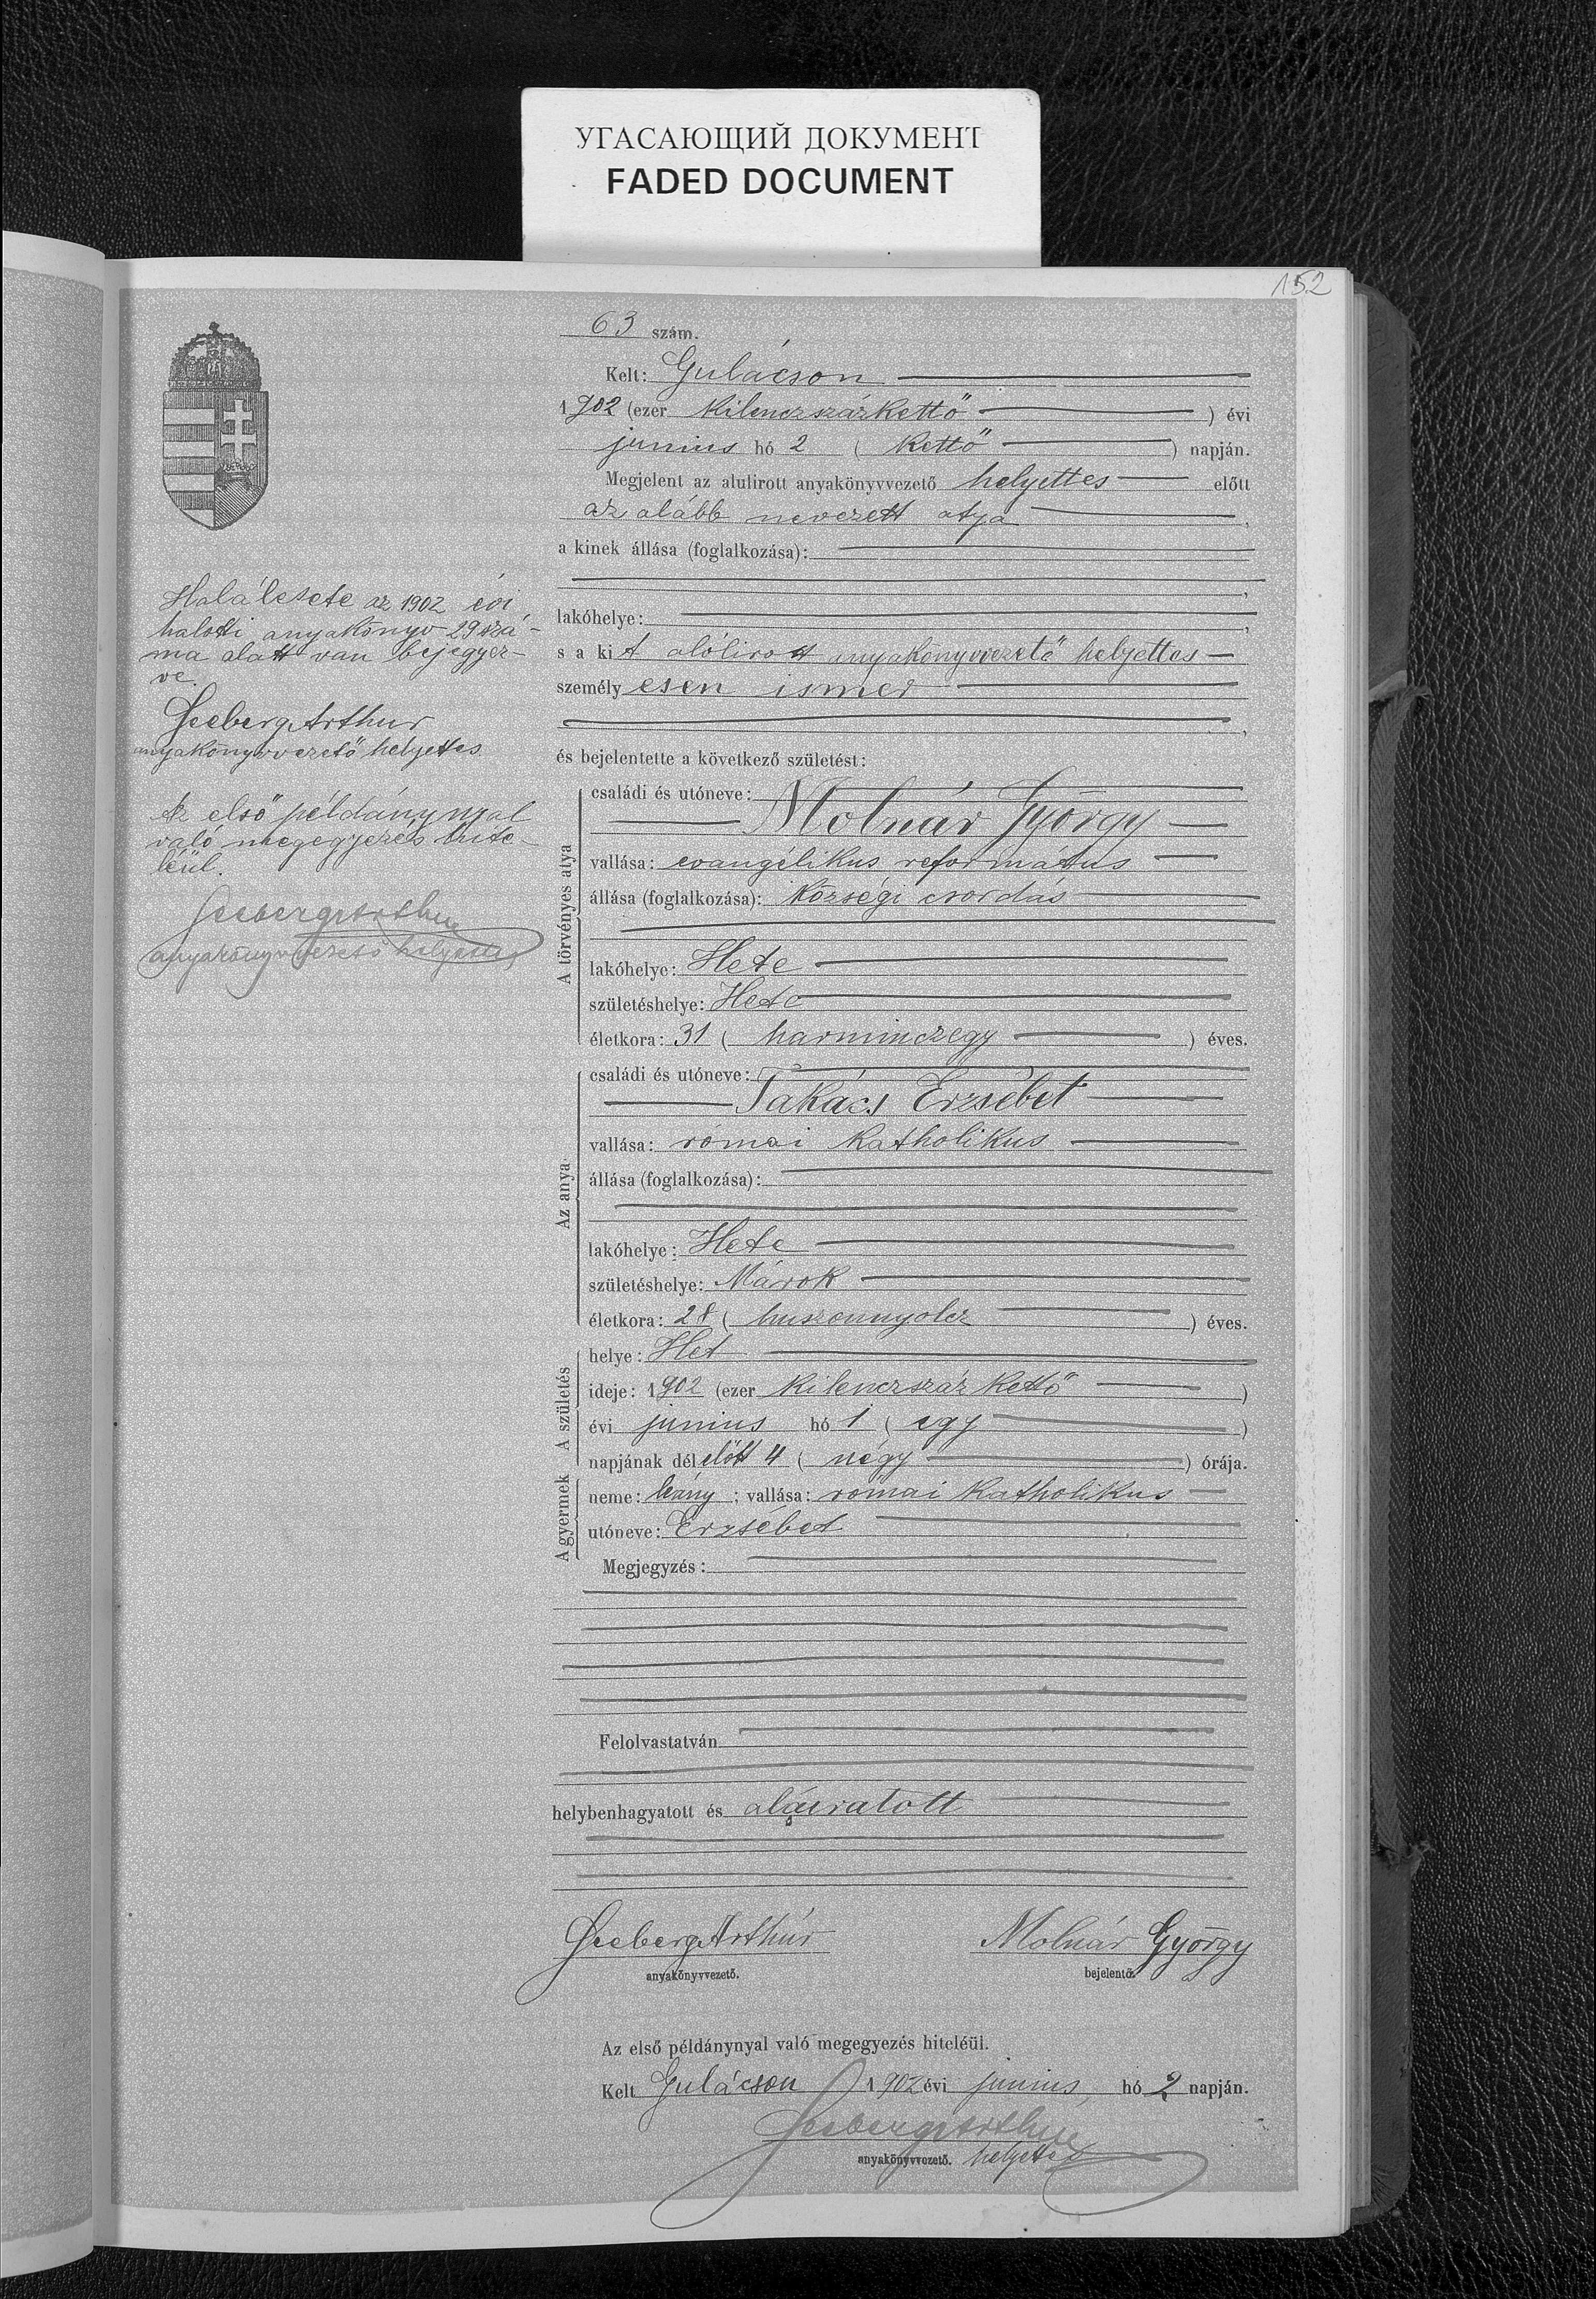 УГАСАЮЩИЙ ДОКУМЕНТ
FADED DOCUMENT
152
63 szám.
Kelt: Gulácson
1902 (ezer kilenczszázkettő) évi
junius hó 2 ( kettő ) napján.
Megjelent az alulirott anyakönyvvezető helyettes előtt
az alább nevezett atya,
a kinek állása (foglalkozása):
,
lakóhelye: ,
s a kit alólirott anyakönyvvezető helyettes
személyesen ismer
,
és bejelentette a következő születést:
A törvényes atya
családi és utóneve:
Molnár György
vallása: evangélikus református
állása (foglalkozása): községi csordás
lakóhelye: Hete
születéshelye: Hete
életkora: 31 ( harminczegy ) éves.
Az anya
családi és utóneve:
Takács Erzsébet
vallása: római katholikus
állása (foglalkozása):
lakóhelye: Hete
születéshelye: Márok
életkora: 28 ( huszonnyolcz ) éves.
A születés
helye: Het
ideje: 1902 (ezer kilenczszáz kettő )
évi junius hó 1 ( egy )
napjának délelőtt 4 ( négy ) órája.
A gyermek
neme: leány; vallása: római katholikus
utóneve: Erzsébet
Megjegyzés:
Felolvastatván
helybenhagyatott és aláiratott
Seeberg Arthúr
anyakönyvvezető.
Molnár György
bejelentő.
Az első példánynyal való megegyezés hiteléül.
Kelt Gulácson 1902 évi junius hó 2 napján.
Seeberg Arthur
anyakönyvvezető. helyettes
Halálesete az 1902 évi
halotti anyakönyv 29 szá-
ma alatt van bejegyez-
ve.
Seeberg Arthur
anyakönyvvezető helyettes
Az első példánynyal
való megegyezés hite-
léül.
Seeberg Arthur
anyakönyvvezető helyettes